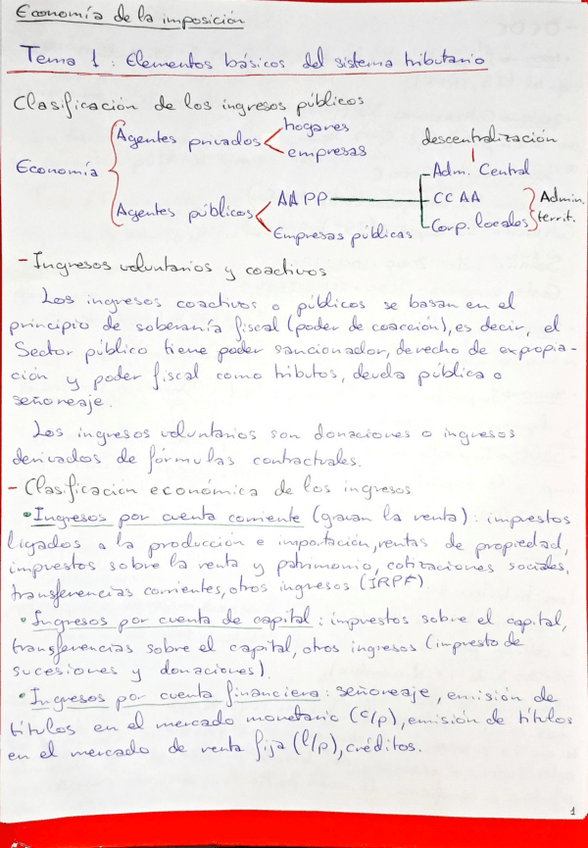 Economía de la imposición
Tema 1: Elementos básicos del sistema tributario
Clasificación de los ingresos públicos
Economía
Agentes privados
hogares
empresas
Agentes públicos
AAPP
Empresas públicas
descentralización
Adm. Central
CCAA
Corp. locales
Admin.
territ.
- Ingresos voluntarios y coactivos
Los ingresos coactivos o públicos se basan en el
principio de soberanía fiscal (poder de coacción), es decir, el
Sector público tiene poder sancionador, derecho de expropia-
ción y poder fiscal como tributos, deuda pública o
señoreaje.
Los ingresos voluntarios son donaciones o ingresos
derivados de fórmulas contractuales.
- Clasificación económica de los ingresos
• Ingresos por cuenta corriente (gravan la renta): impuestos
ligados a la producción e importación, rentas de propiedad,
impuestos sobre la renta y patrimonio, cotizaciones sociales,
transferencias corrientes, otros ingresos (IRPF)
• Ingresos por cuenta de capital: impuestos sobre el capital,
transferencias sobre el capital, otros ingresos (impuesto de
sucesiones y donaciones).
• Ingresos por cuenta financiera: señoreaje, emisión de
títulos en el mercado monetario (c/p), emisión de títulos
en el mercado de renta fija (l/p), créditos.
1